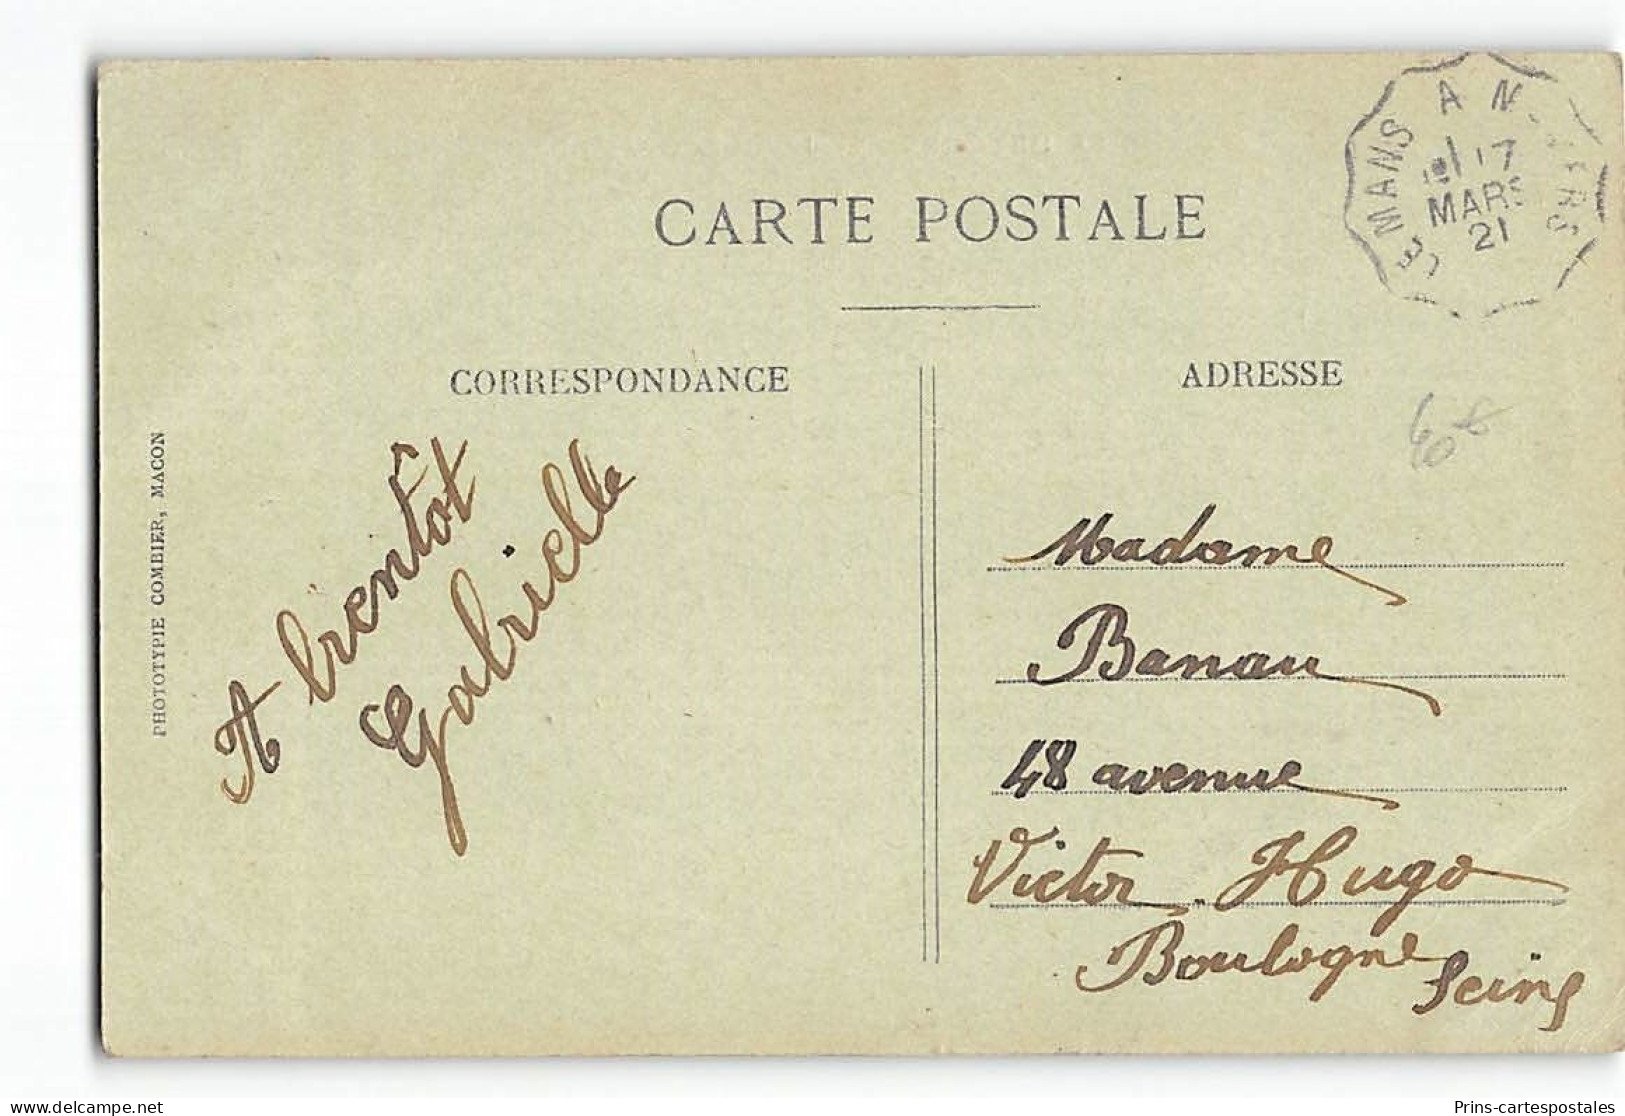 CARTE POSTALE
LE MANS A ANGERS
17
MARS
21
CORRESPONDANCE
ADRESSE
PHOTOTYPIE COMBIER, MACON
A bientôt
Gabrielle
Madame
Banau
48 avenue
Victor Hugo
Boulogne
Seine
Prins-cartespostales